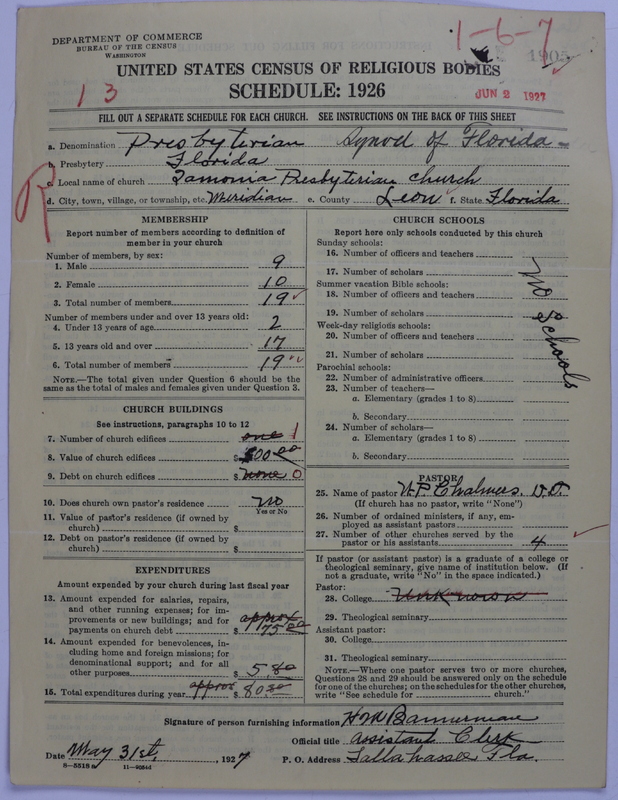 DEPARTMENT OF COMMERCE
BUREAU OF THE CENSUS
WASHINGTON
1-6-7
1905
UNITED STATES CENSUS OF RELIGIOUS BODIES
SCHEDULE: 1926
13
JUN 2 1927
FILL OUT A SEPARATE SCHEDULE FOR EACH CHURCH. SEE INSTRUCTIONS ON THE BACK OF THIS SHEET
a. Denomination Presbyterian Synod of Florida
b. Presbytery Florida
c. Local name of church Iamonia Presbyterian church
d. City, town, village, or township, etc. Meridian e. County Leon f. State Florida
MEMBERSHIP
Report number of members according to definition of
member in your church
Number of members, by sex:
1. Male 9
2. Female 10
3. Total number of members 19
Number of members under and over 13 years old:
4. Under 13 years of age 2
5. 13 years old and over 17
6. Total number of members 19
NOTE.—The total given under Question 6 should be
same as the total of males and females given under Question 3.
CHURCH BUILDINGS
See instructions, paragraphs 10 to 12
7. Number of church edifices one 1
8. Value of church edifices $
9. Debt on church edifices $ none 0
10. Does church own pastor's residence No
Yes or No
11. Value of pastor's residence (if owned by
church) $
12. Debt on pastor's residence (if owned by
church) $
EXPENDITURES
Amount expended by your church during last fiscal year
13. Amount expended for salaries, repairs,
and other running expenses; for im-
provements or new buildings; and for
payments on church debt $ approx 75 00
14. Amount expended for benevolences, in-
cluding home and foreign missions; for
denominational support; and for all
other purposes $ 5.80
15. Total expenditures during year approx $ 80.80
CHURCH SCHOOLS
Report here only schools conducted by this church
Sunday schools:
16. Number of officers and teachers
17. Number of scholars
Summer vacation Bible schools:
18. Number of officers and teachers
19. Number of scholars
Week-day religious schools:
20. Number of officers and teachers
21. Number of scholars
Parochial schools:
22. Number of administrative officers
23. Number of teachers—
a. Elementary (grades 1 to 8)
b. Secondary
24. Number of scholars—
a. Elementary (grades 1 to 8)
b. Secondary
No Schools
PASTOR
25. Name of pastor W.P. Chalmers. D.D.
(If church has no pastor, write "None")
26. Number of ordained ministers, if any, em-
ployed as assistant pastors
27. Number of other churches served by the
pastor or his assistants 4
If pastor (or assistant pastor) is a graduate of a college or
theological seminary, give name of institution below. (If
not a graduate, write "No" in the space indicated.)
Pastor:
28. College Unknown
29. Theological seminary
Assistant pastor:
30. College
31. Theological seminary
NOTE.—Where one pastor serves two or more churches,
Questions 28 and 29 should be answered only on the schedule
for one of the churches; on the schedules for the other churches,
write "See schedule for church."
Signature of person furnishing information H M Bannerman
Official title Assistant Clerk
Date May 31st, 1927 P. O. Address Tallahassee Fla.
8-5518a 11-9054d